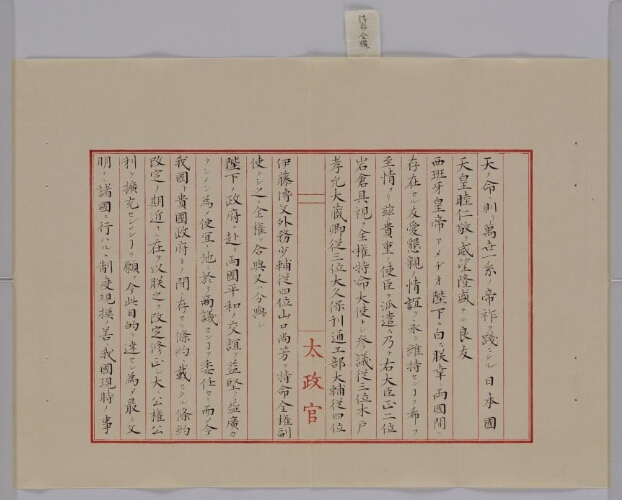 天ノ命ニ則リ萬世一系ノ帝祚ヲ践ミタル日本國
天皇睦仁敬テ威望隆盛ナル良友
西班牙皇帝アメデオ陛下ニ白ス朕幸ニ両國間ニ
存在セル友愛懇親ノ情誼ヲ永ク維持センヿヲ希フ
至情ヨリ茲ニ貴重ノ使臣ヲ派遣ス乃チ右大臣正二位
岩倉具視ヲ全権特命大使トシ参議従三位木戸
孝允大蔵卿従三位大久保利通工部大輔従四位
太政官
伊藤博文外務少輔従四位山口尚芳ヲ特命全権副
使トシ之ニ全権ヲ合與又ハ分與シ
陛下ノ政府ニ赴キ両國平和ノ交誼ヲ益堅ク益廣カ
ラシメン為メ便宜ノ地ニ於テ商議センヿヲ委任セリ而シテ今
我國ト貴國政府トノ間ニ存セル條約ニ載セタル條約
改定ノ期近キニ在ルヲ以テ朕之ヲ改定修正シ大ニ公権公
利ヲ擴充センヿヲ願フ今此目的ヲ達セン為メ最モ文
明ナル諸國ニ行ハルヽ制度規模ノ善ク我國現時ノ事